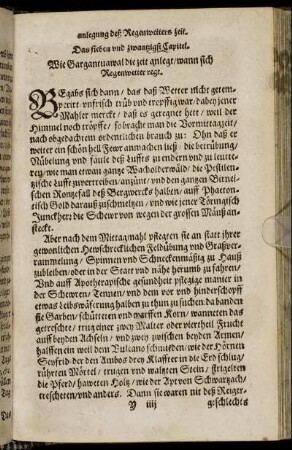 anlegung deß Regenwetters zeit.
Das sieben vnd zwantzigst Capitel.
Wie Gargantuawal die zeit anlegt/wann sich
Regenwetter regt.
BEgabs sich dann / das daß Wetter nicht getem-
periert vnfrisch trüb vnd tropffig war / dabey jener
Mahler merckt / daß es geregnet hett / weil der
Himmel noch tröpffe / so bracht man die Vormittagzeit /
nach obgedachtem ordentlichen brauch zu: Ohn daß er
weiter ein schön hell Fewr anmachen ließ / die betrübung /
Nübelung vnd fäule deß luffts zu endern vnd zu leutte-
ren / wie man etwan gantze Wacholderwäld / die Pestilen-
tzische lufft zuvertreiben / anzünt / vnd den gantzen
Rontzefall deß Bergwercks halben / auff Phaetton-
isch Gold darauß zuschmeltzen / vnd wie jener Töringisch
Junckherr die Schewr von wegen der grossen Mäuß an-
steckt.
Aber nach dem Mittagmahl pflegten sie an statt ihrer
gewonlichen Hewschrecklichen Feldübung vnd Graßver-
sammelung / Spinnen vnd Schneckenmäßig zu Hauß
zubleiben / oder in der Statt vnd nähe herumb zu fahren /
Vnd auff Apothecapische gesundheit pflegige manier in
der Schewren / Tennen / vnd dem vor vnd hinderschopff
etwas Leibswärung halben zu thun zu suchen. da banden
sie Garben / schütteten vnd warffen Korn / wanneten das
getroschet / trug einer zwey Malter oder viertheil Frucht
auff beyden Achseln / vnd zwey zwischen beyden Armen /
halffen ein weil dem Vulcano schmiden / wie der Hörnen
Seyfrid der den Ambos drey Klaffter in die Erd schlug /
rührten Mörtel / trugen vnd waltzten Stein / strigelten
die Pferd / haweten Holtz / wie der Apt von Schwartzach /
treschetten / vnd anders. Dann sie waren nit deß Reiger-
Y iiij geschlechts